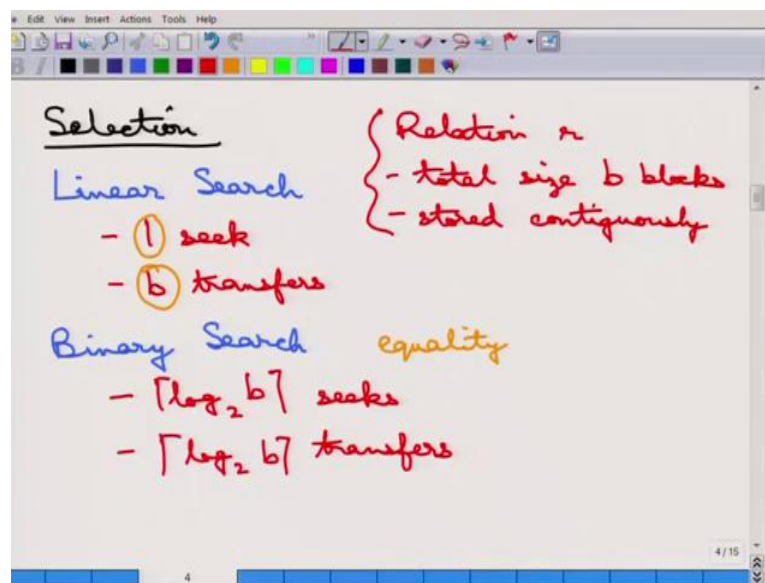 Edit View Insert Actions Tools Help
Selection
Linear Search
- 1 seek
- b transfers
Binary Search equality
- ⌈log₂ b⌉ seeks
- ⌈log₂ b⌉ transfers
{ Relation r
- total size b blocks
- stored contiguously
4/15
4